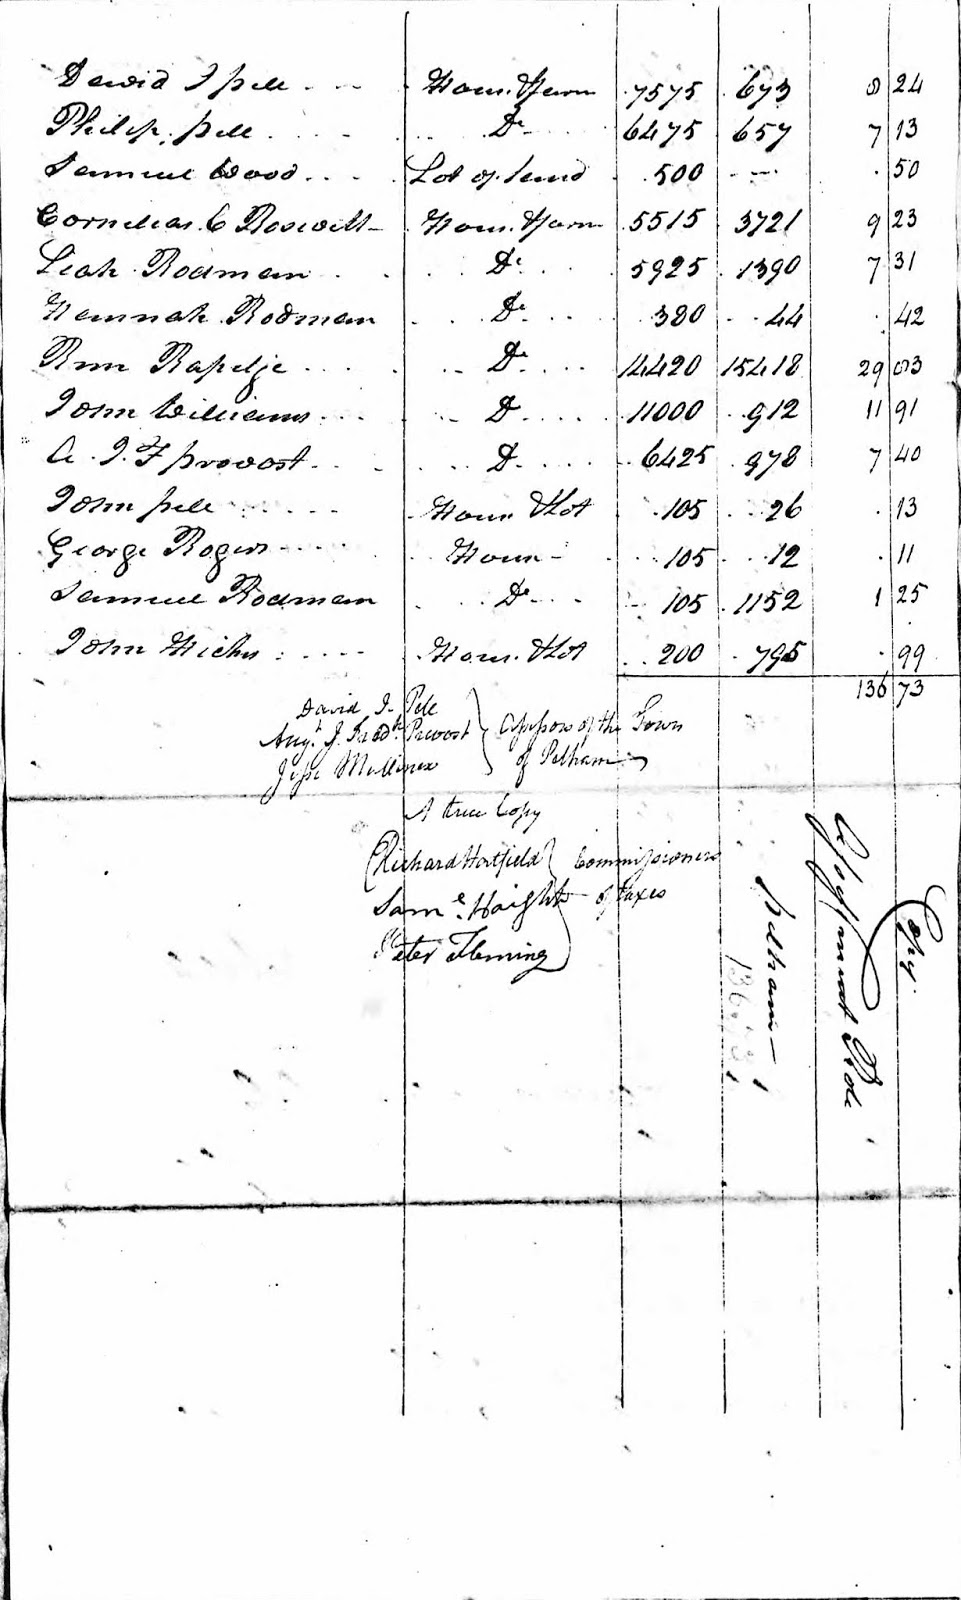 David J pell . . . House & farm 7575 673 8 24
Philip pell . . . . . Do 6475 657 7 13
Samuel Wood . . . Lot of land 500 - - - . 50
Cornelius C Rosevelt - House & farm 5515 3721 9 23
Leah Rodman . . . Do . . . 5925 1390 7 31
Hannah Rodman . . . Do . . . 380 . . 44 . 42
Ann Rapelje . . . . . Do . . . . 14420 15418 29 03
John Williams . . . . Do . . . . 11000 . . 912 11 91
A . J . F provost . . . . Do . . . . 6425 978 7 40
John pell . . . . House & Lot . 105 . . 26 . 13
George Rogers . . . . House - . . 105 . . 12 . 11
Samuel Rodman . . . Do . . . 105 . 1152 1 25
John Hicks . . . . House & Lot . . 200 . 795 . 99
136 73
David J. Pell
Augt. J. Fredk. Prevost } Assessors of the Town
Jesse Mullinex of Pelham
A true Copy
Richard Hatfield } Commissioners
Saml. Haight of taxes
Peter Fleming
Copy.
Assessment Role
pelham -